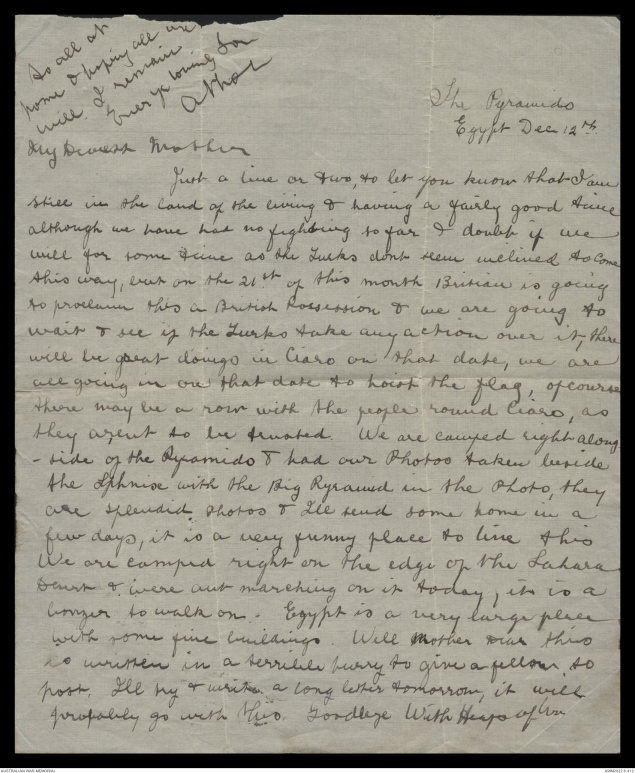 The Pyramids
Egypt Dec 12th.
My Dearest Mother
Just a line or two, to let you know that I am
still in the land of the living & having a fairly good time
although we have had no fighting so far & doubt if we
will for some time as the Turks dont seem inclined to come
this way, but on the 21st of this month Britian is going
to proclaim this a British Possession & we are going to
wait & see if the Turks take any action over it, there
will be great doings in Ciaro on that date, we are
all going in on that date to hoist the flag, ofcourse
there may be a row with the people round Ciaro, as
they arent to be trusted. We are camped right along
-side of the Pyramids & had our Photos taken beside
the Sphnix with the Big Pyramid in the Photo, they
are splendid Photos & I'll send some home in a
few days, it is a very funny place to live this
We are camped right on the edge of the Sahara
Desert & were out marching on it today, it is a
bonzer to walk on. Egypt is a very large place
with some fine buildings. Well Mother dear this
is written in a terrible hurry to give a fellow to
post. I'll try & write a long letter tomorrow, it will
probably go with this. Goodbye With Heaps of love
to all at
home & hoping all are
well. I remain
Ever yr loving Son
Athol
AUSTRALIAN WAR MEMORIAL